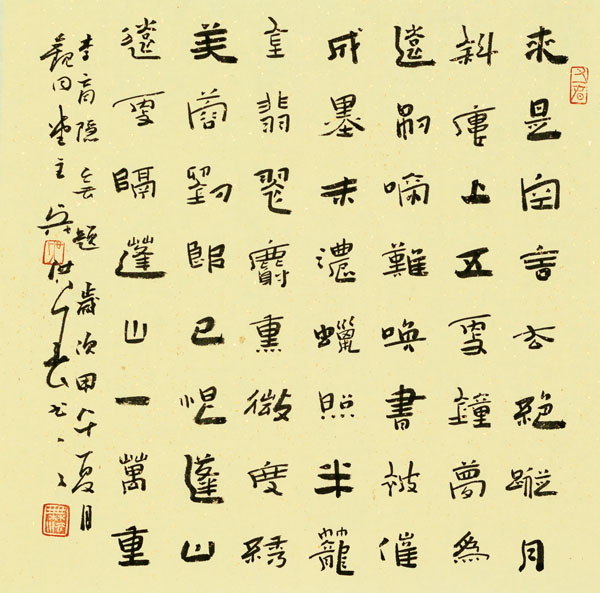 來是空言去絕蹤月
斜樓上五更鐘夢為
遠別啼難喚書被催
成墨未濃蠟照半籠
金翡翠麝熏微度綉
芙蓉劉郎已恨蓬山
遠更隔蓬山一萬重
李商隱無題歲次甲午夏月
堂主